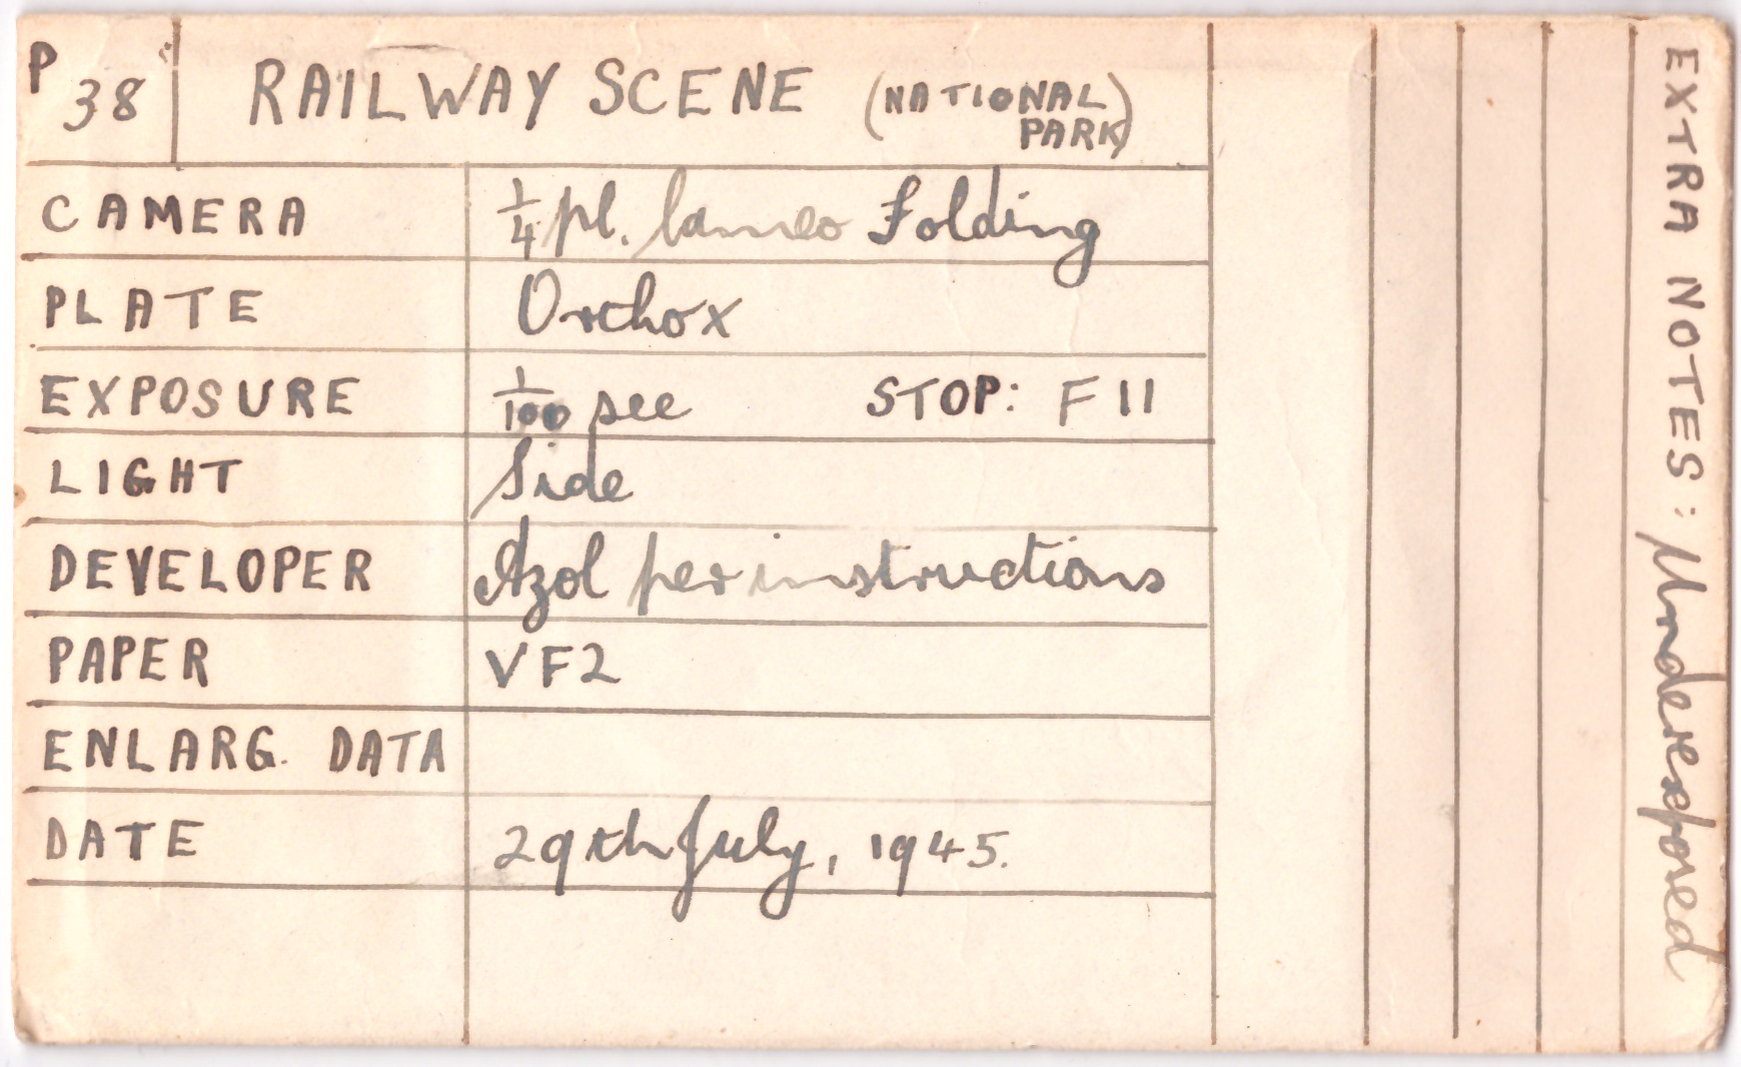 P 38 RAILWAY SCENE (NATIONAL
PARK)
CAMERA ¼ pl. Cameo Folding
PLATE Orthox
EXPOSURE 1/100 sec STOP: F 11
LIGHT Side
DEVELOPER Azol per instructions
PAPER VF2
ENLARG. DATA
DATE 29th July, 1945.
EXTRA NOTES: Underexposed